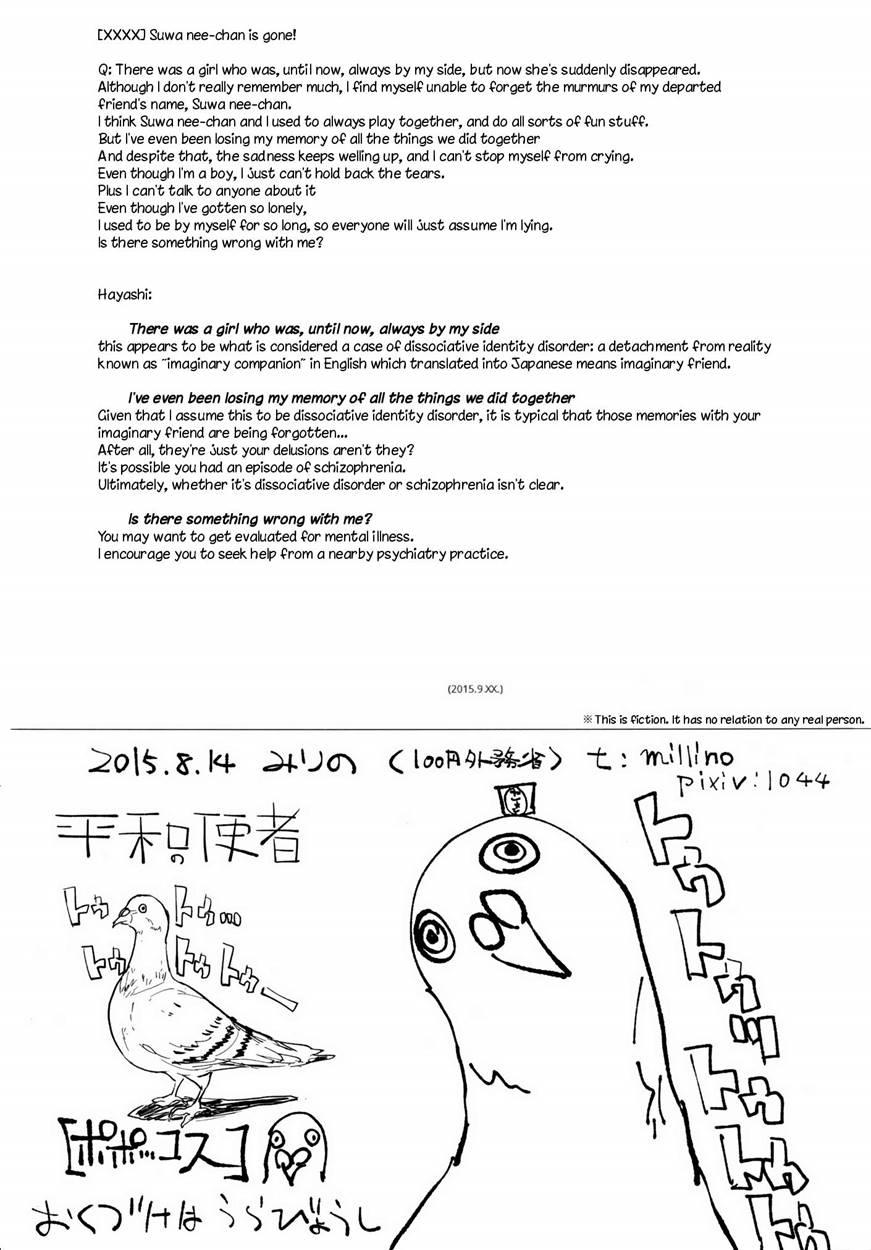 [XXXX] Suwa nee-chan is gone!
Q: There was a girl who was, until now, always by my side, but now she's suddenly disappeared.
Although I don't really remember much, I find myself unable to forget the murmurs of my departed
friend's name, Suwa nee-chan.
I think Suwa nee-chan and I used to always play together, and do all sorts of fun stuff.
But I've even been losing my memory of all the things we did together
And despite that, the sadness keeps welling up, and I can't stop myself from crying.
Even though I'm a boy, I just can't hold back the tears.
Plus I can't talk to anyone about it
Even though I've gotten so lonely,
I used to be by myself for so long, so everyone will just assume I'm lying.
Is there something wrong with me?
Hayashi:
There was a girl who was, until now, always by my side
this appears to be what is considered a case of dissociative identity disorder: a detachment from reality
known as ~imaginary companion~ in English which translated into Japanese means imaginary friend.
I've even been losing my memory of all the things we did together
Given that I assume this to be dissociative identity disorder, it is typical that those memories with your
imaginary friend are being forgotten...
After all, they're just your delusions aren't they?
It's possible you had an episode of schizophrenia.
Ultimately, whether it's dissociative disorder or schizophrenia isn't clear.
Is there something wrong with me?
You may want to get evaluated for mental illness.
I encourage you to seek help from a nearby psychiatry practice.
(2015.9.XX.)
※This is fiction. It has no relation to any real person.
2015.8.14 みりの (100円外務省) t: millino
pixiv:1044
平和の使者
トゥ トゥ...
トゥ トゥ トゥー
[ポポ...コス]
おくづけは うらびょうし
トゥ
トゥッ
トゥ
トゥ
トゥ